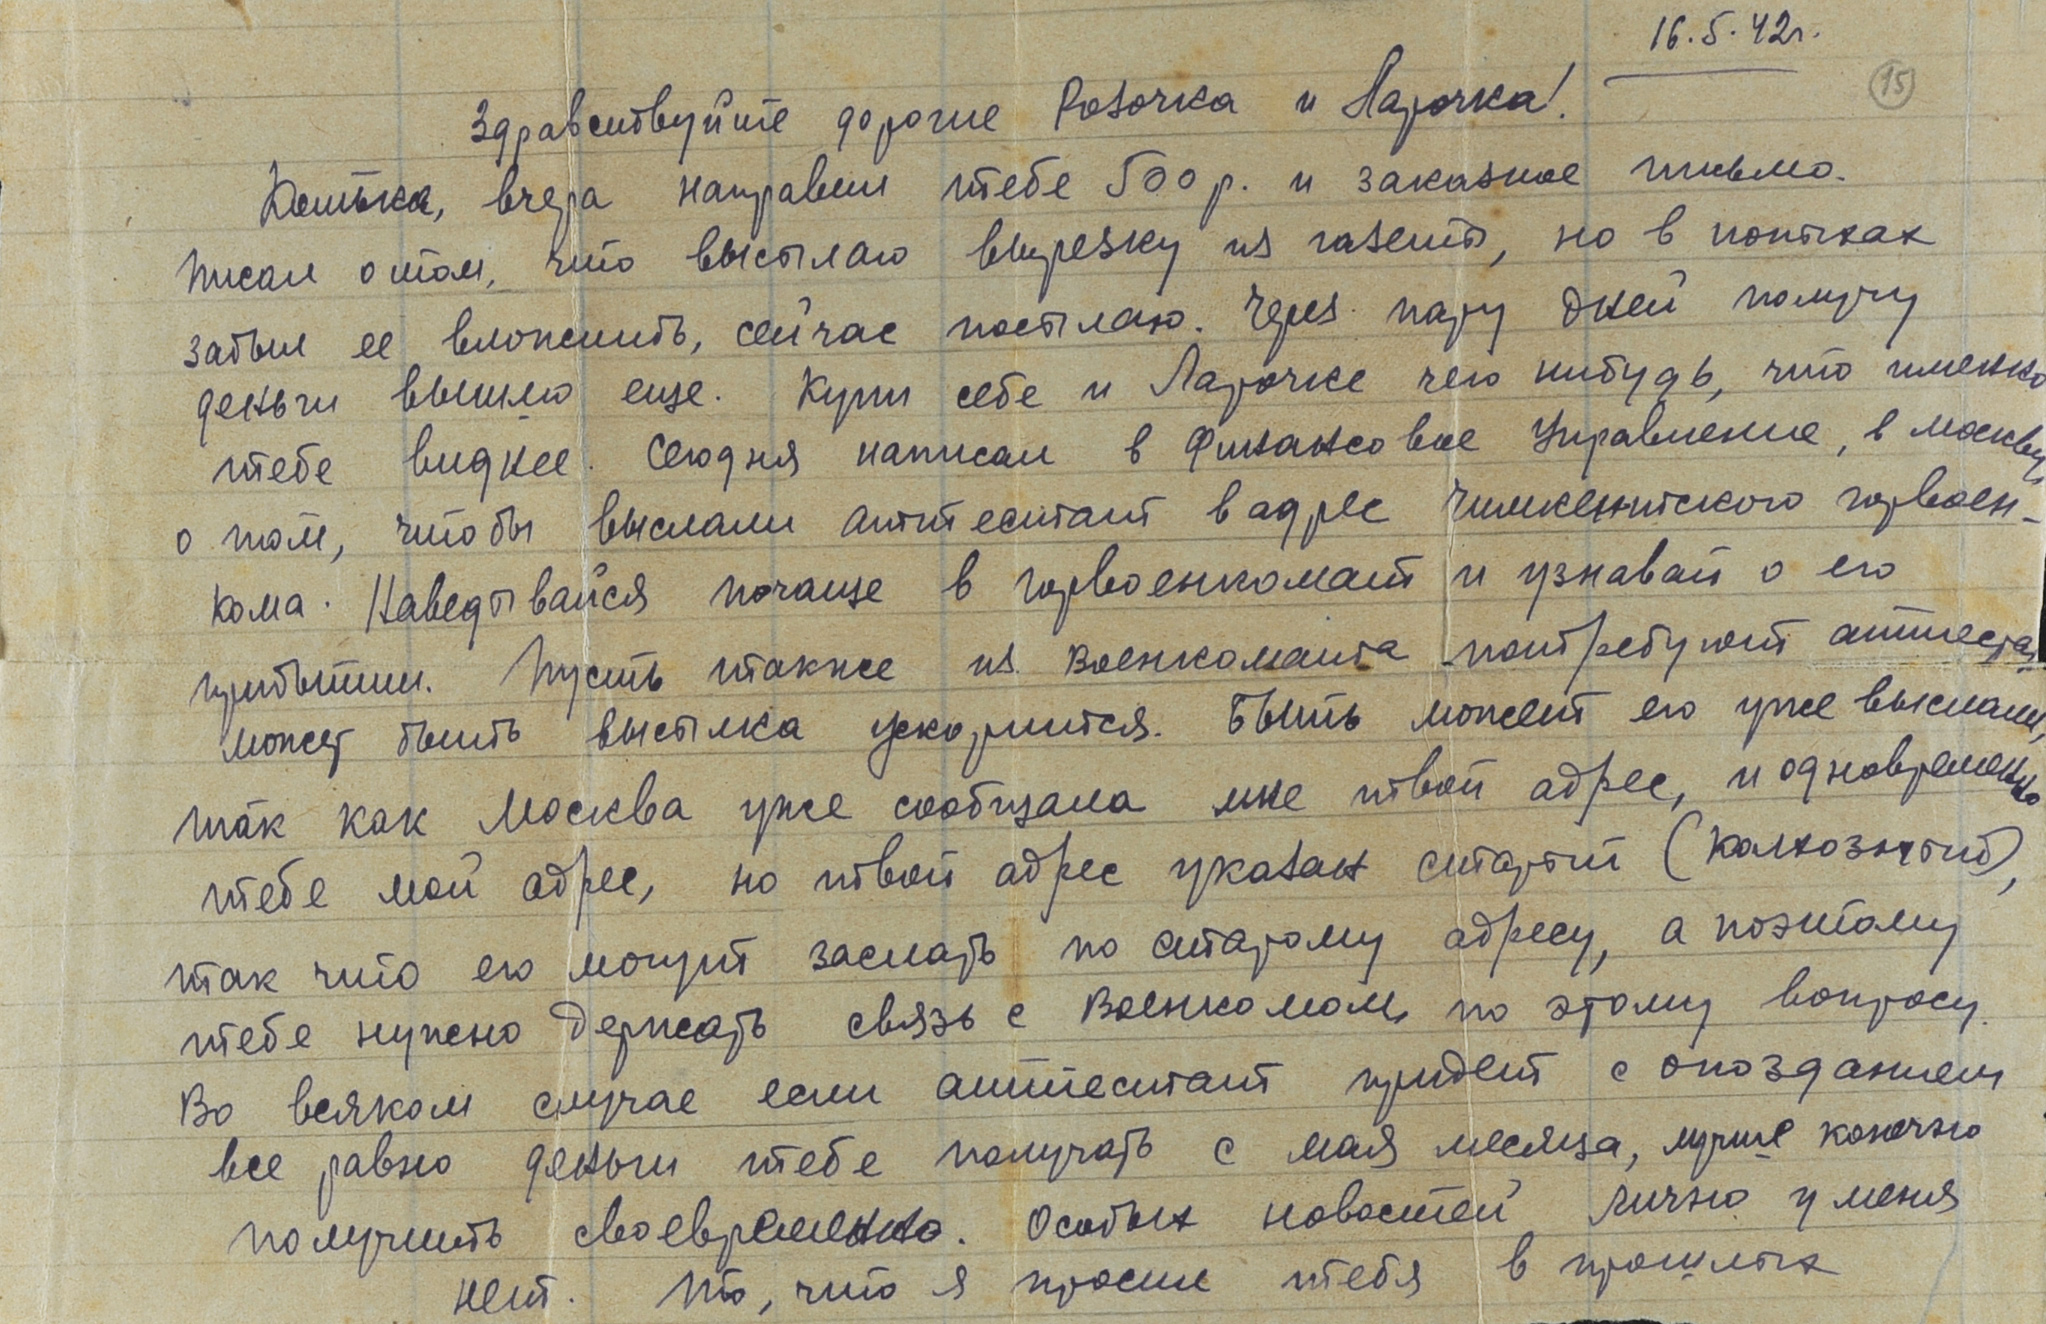 16.5.42г.
15
Здравствуйте дорогие Розочка и Ларочка!
вчера направил тебе 500 р. и заказное письмо.
Писал о том, что высылаю вырезку из газеты, но в попыхах
забыл ее вложить, сейчас посылаю. Через пару дней получу
деньги вышлю еще. Купи себе и Ларочке чего нибудь, что именно
тебе виднее. Сегодня написал в Финансовое Управление, в Москву
о том, чтобы выслали аттестат в адрес Чимкентского горвоен-
кома. Наведывайся почаще в горвоенкомат и узнавай о его
прибытии. Пусть также из военкомата потребуют аттестат,
может быть высылка ускорится. Быть может его уже выслали,
так как Москва уже сообщала мне твой адрес, и одновременно
тебе мой адрес, но твой адрес указан старый (колхозный),
так что его могут заслать по старому адресу, а поэтому
тебе нужно держать связь с военкомом по этому вопросу.
Во всяком случае если аттестат придет с опозданием
все равно деньги тебе получать с мая месяца, лучше конечно
получить своевременно. Особых новостей лично у меня
нет. То, что я просил тебя в прошлых